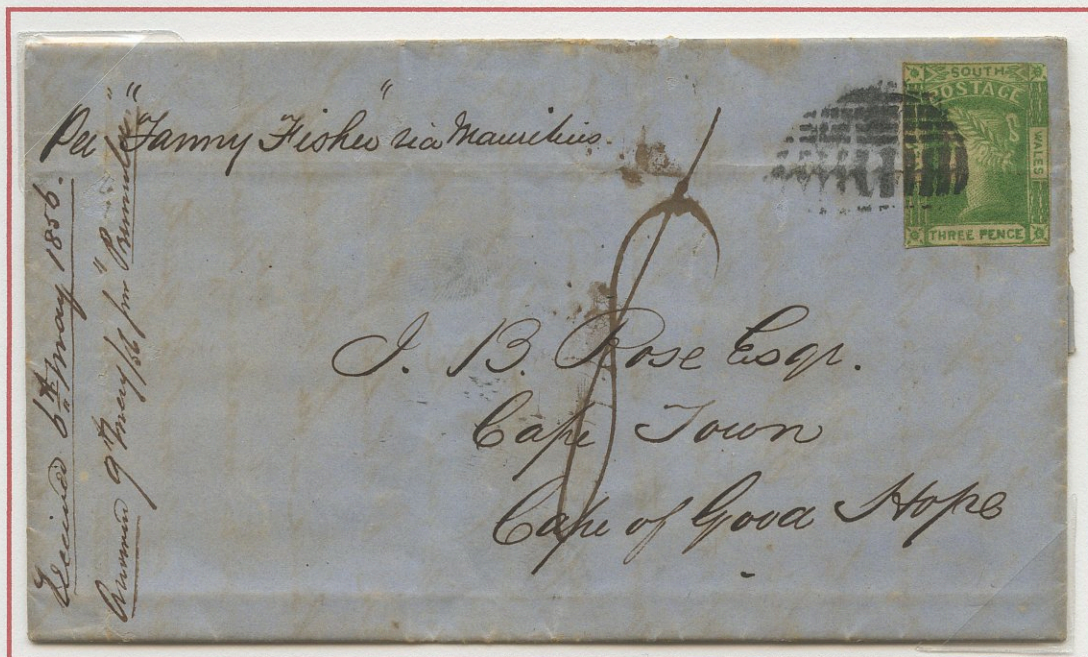 Per "Fanny Fisher" via Mauritius.
SOUTH
POSTAGE
WALES
THREE PENCE
J. B. Rose Esqr.
Cape Town
Cape of Good Hope
Received 6th May 1856.
9th May/56 per